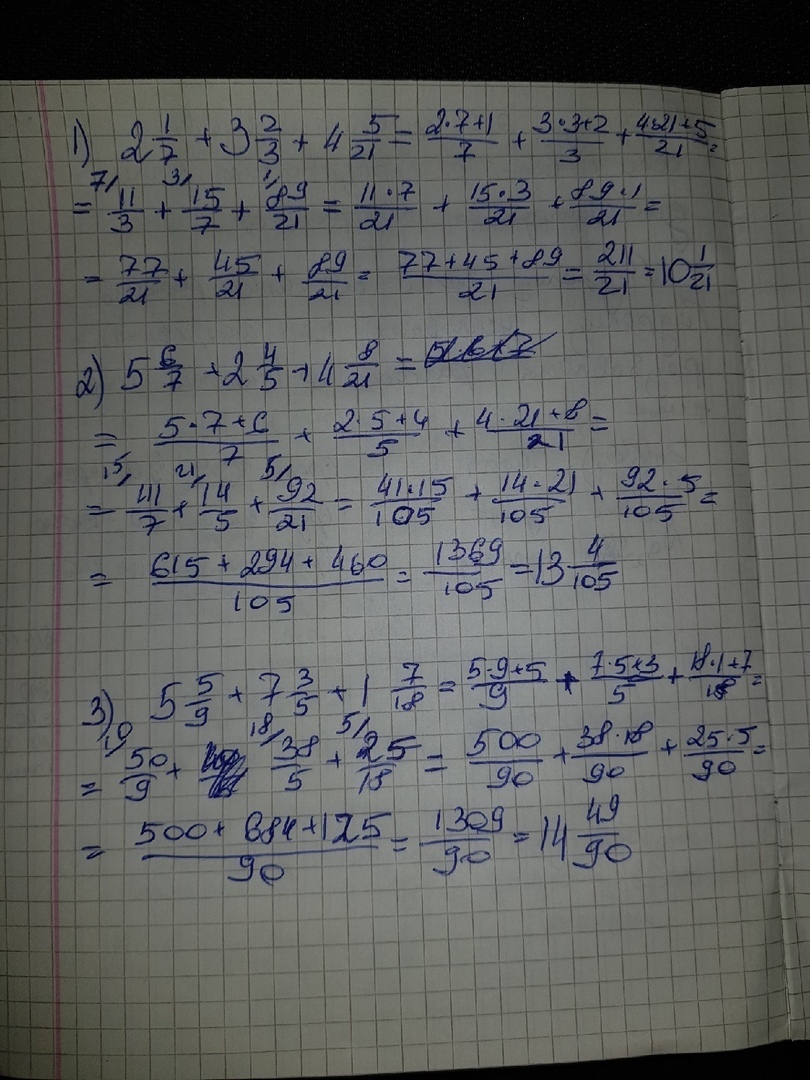 1) 2 1/7 + 3 2/3 + 4 5/21 = (2·7+1)/7 + (3·3+2)/3 + (4·21+5)/21 =
= 7/ 11/3 + 3/ 15/7 + 1/ 89/21 = (11·7)/21 + (15·3)/21 + (89·1)/21 =
= 77/21 + 45/21 + 89/21 = (77+45+89)/21 = 211/21 = 10 1/21
2) 5 6/7 + 2 4/5 + 4 8/21 =
= (5·7+6)/7 + (2·5+4)/5 + (4·21+8)/21 =
= 15/ 41/7 + 21/ 14/5 + 5/ 92/21 = (41·15)/105 + (14·21)/105 + (92·5)/105 =
= (615+294+460)/105 = 1369/105 = 13 4/105
3) 5 5/9 + 7 3/5 + 1 7/18 = (5·9+5)/9 + (7·5+3)/5 + (18·1+7)/18 =
= 10/ 50/9 + 18/ 38/5 + 5/ 25/18 = 500/90 + (38·18)/90 + (25·5)/90 =
= (500+684+125)/90 = 1309/90 = 14 49/90